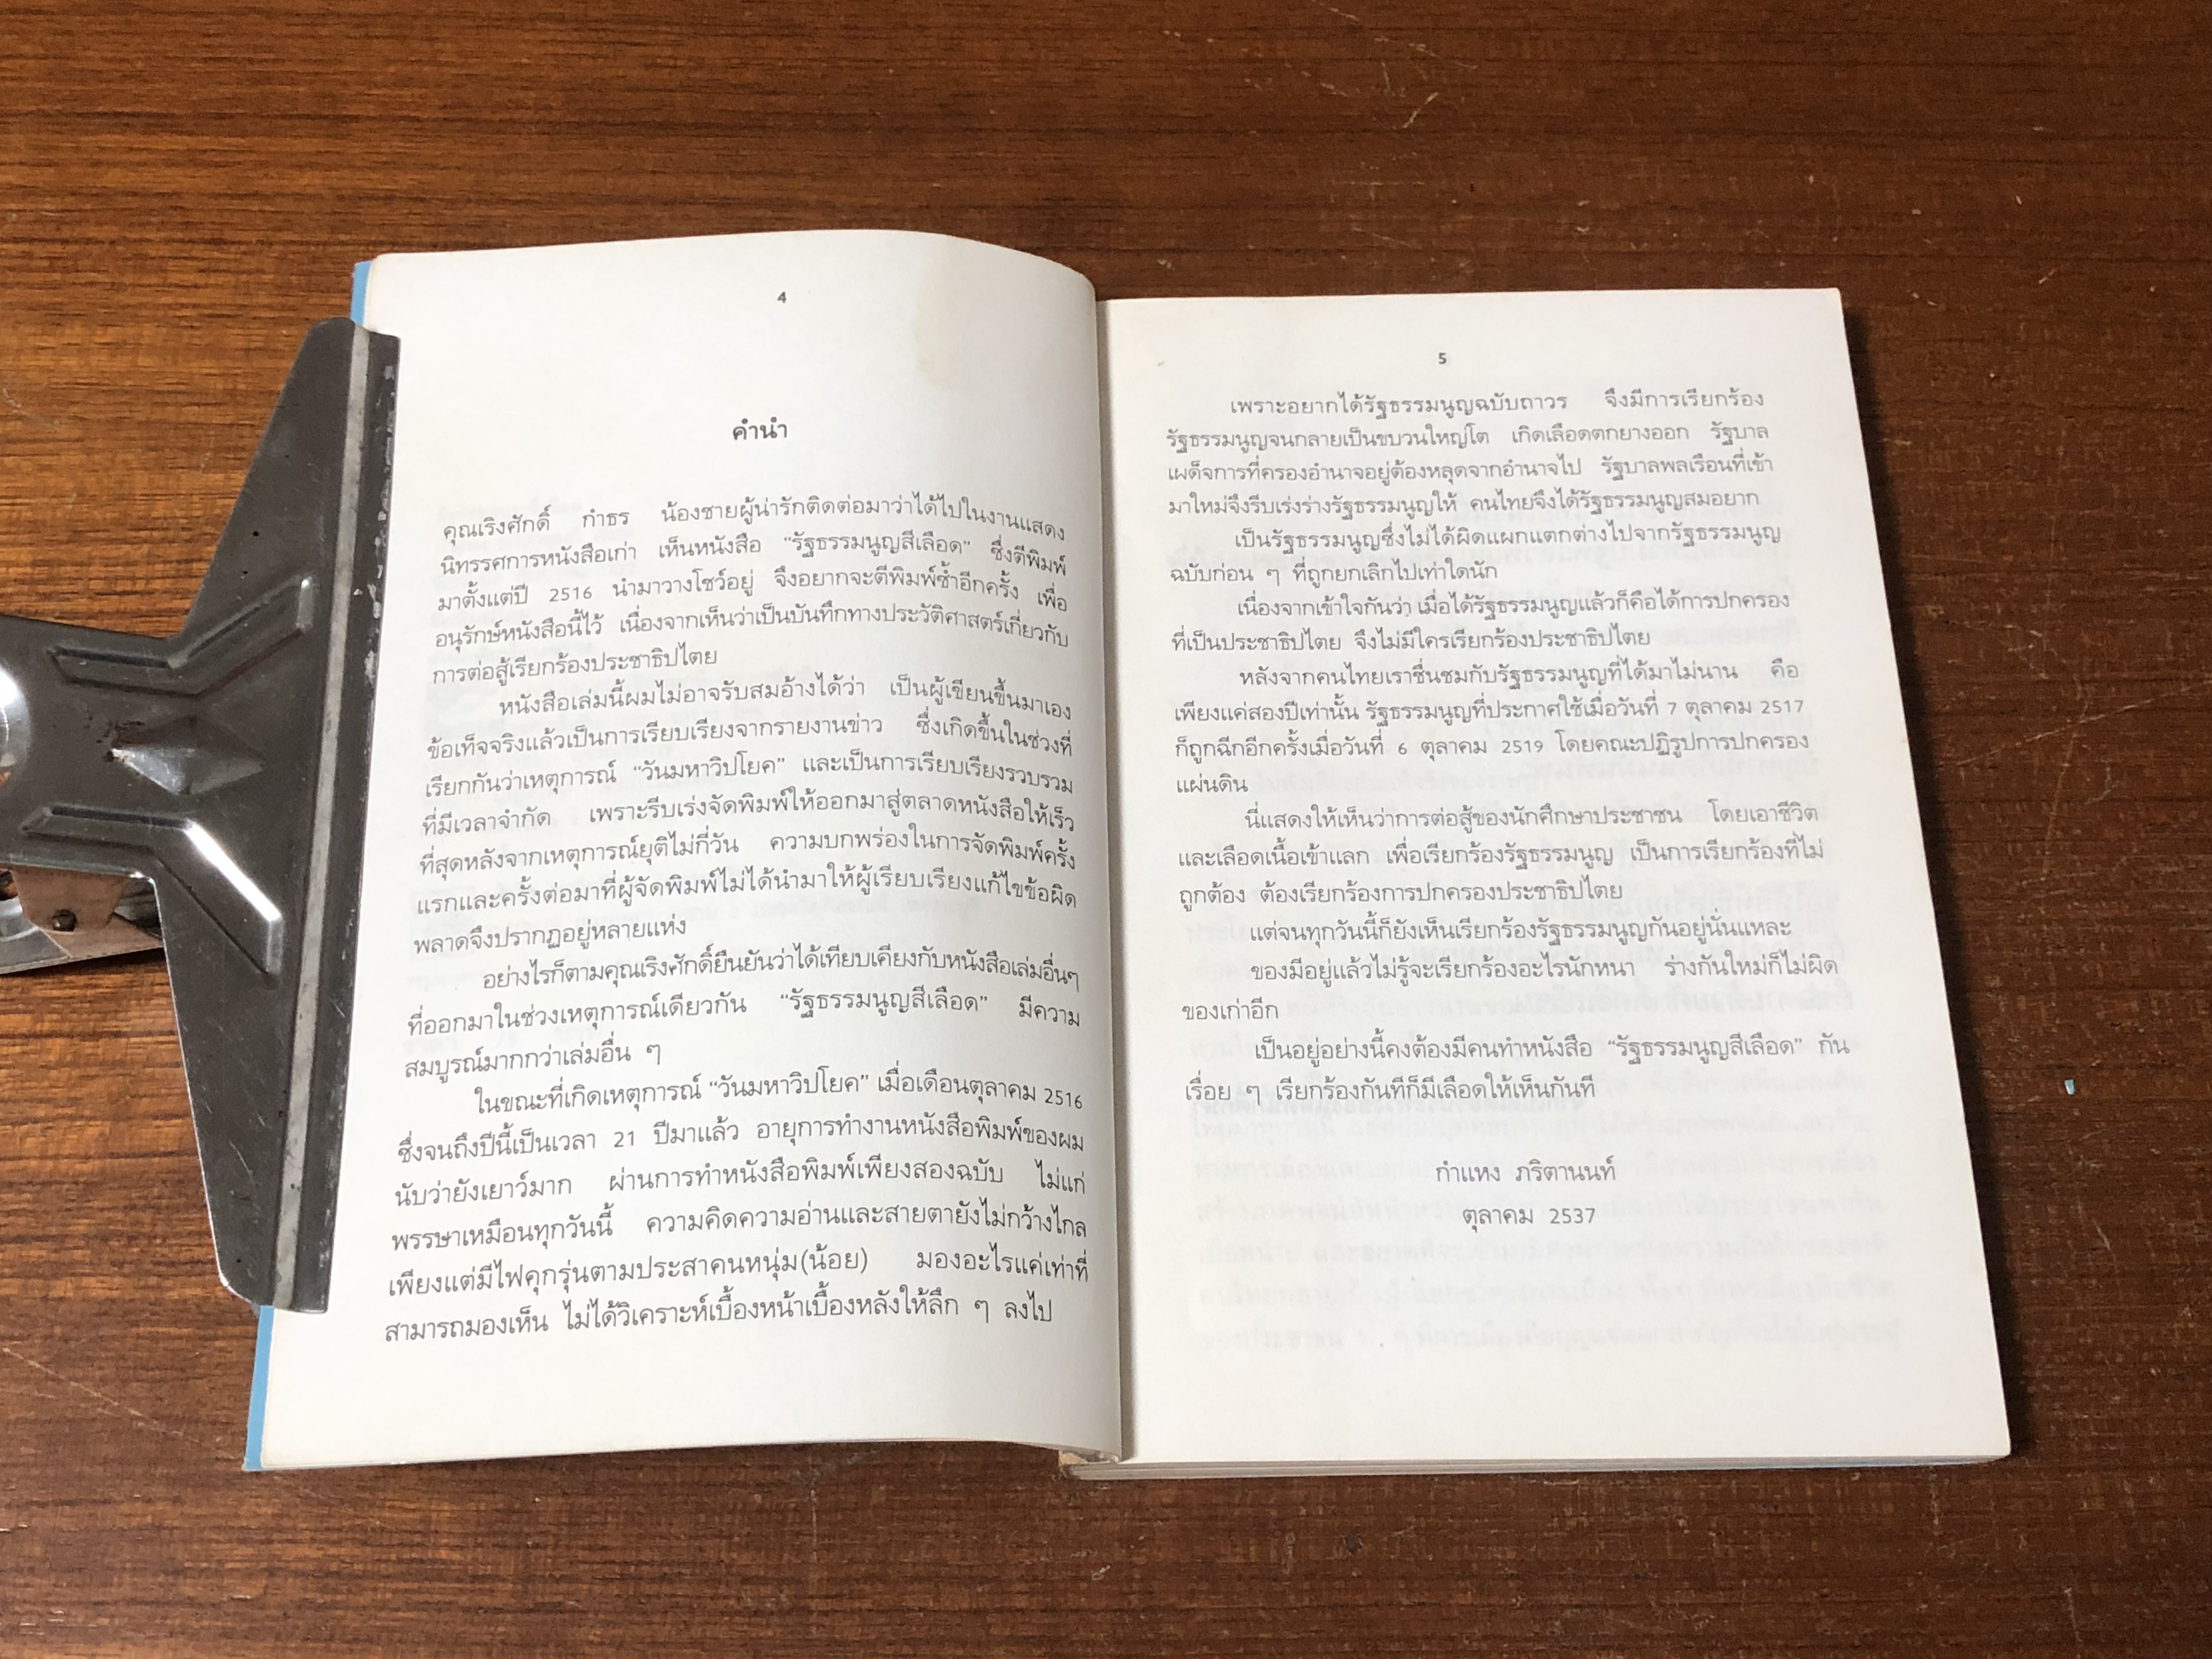 4
คำนำ
คุณเริงศักดิ์ กำธร น้องชายผู้น่ารักติดต่อมาว่าได้ไปในงานแสดง
นิทรรศการหนังสือเก่า เห็นหนังสือ “รัฐธรรมนูญสีเลือด” ซึ่งตีพิมพ์
มาตั้งแต่ปี 2516 นำมาวางโชว์อยู่ จึงอยากจะตีพิมพ์ซ้ำอีกครั้ง เพื่อ
อนุรักษ์หนังสือนี้ไว้ เนื่องจากเห็นว่าเป็นบันทึกทางประวัติศาสตร์เกี่ยวกับ
การต่อสู้เรียกร้องประชาธิปไตย
หนังสือเล่มนี้ผมไม่อาจรับสมอ้างได้ว่า เป็นผู้เขียนขึ้นมาเอง
ข้อเท็จจริงแล้วเป็นการเรียบเรียงจากรายงานข่าว ซึ่งเกิดขึ้นในช่วงที่
เรียกกันว่าเหตุการณ์ “วันมหาวิปโยค” และเป็นการเรียบเรียงรวบรวม
ที่มีเวลาจำกัด เพราะรีบเร่งจัดพิมพ์ให้ออกมาสู่ตลาดหนังสือให้เร็ว
ที่สุดหลังจากเหตุการณ์ยุติไม่กี่วัน ความบกพร่องในการจัดพิมพ์ครั้ง
แรกและครั้งต่อมาที่ผู้จัดพิมพ์ไม่ได้นำมาให้ผู้เรียบเรียงแก้ไขข้อผิด
พลาดจึงปรากฏอยู่หลายแห่ง
อย่างไรก็ตามคุณเริงศักดิ์ยืนยันว่าได้เทียบเคียงกับหนังสือเล่มอื่นๆ
ที่ออกมาในช่วงเหตุการณ์เดียวกัน “รัฐธรรมนูญสีเลือด” มีความ
สมบูรณ์มากกว่าเล่มอื่น ๆ
ในขณะที่เกิดเหตุการณ์ “วันมหาวิปโยค” เมื่อเดือนตุลาคม 2516
ซึ่งจนถึงปีนี้เป็นเวลา 21 ปีมาแล้ว อายุการทำงานหนังสือพิมพ์ของผม
นับว่ายังเยาว์มาก ผ่านการทำหนังสือพิมพ์เพียงสองฉบับ ไม่แก่
พรรษาเหมือนทุกวันนี้ ความคิดความอ่านและสายตายังไม่กว้างไกล
เพียงแต่มีไฟคุกรุ่นตามประสาคนหนุ่ม(น้อย) มองอะไรแค่เท่าที่
สามารถมองเห็น ไม่ได้วิเคราะห์เบื้องหน้าเบื้องหลังให้ลึก ๆ ลงไป
5
เพราะอยากได้รัฐธรรมนูญฉบับถาวร จึงมีการเรียกร้อง
รัฐธรรมนูญจนกลายเป็นขบวนใหญ่โต เกิดเลือดตกยางออก รัฐบาล
เผด็จการที่ครองอำนาจอยู่ต้องหลุดจากอำนาจไป รัฐบาลพลเรือนที่เข้า
มาใหม่จึงรีบเร่งร่างรัฐธรรมนูญให้ คนไทยจึงได้รัฐธรรมนูญสมอยาก
เป็นรัฐธรรมนูญซึ่งไม่ได้ผิดแผกแตกต่างไปจากรัฐธรรมนูญ
ฉบับก่อน ๆ ที่ถูกยกเลิกไปเท่าใดนัก
เนื่องจากเข้าใจกันว่า เมื่อได้รัฐธรรมนูญแล้วก็คือได้การปกครอง
ที่เป็นประชาธิปไตย จึงไม่มีใครเรียกร้องประชาธิปไตย
หลังจากคนไทยเราชื่นชมกับรัฐธรรมนูญที่ได้มาไม่นาน คือ
เพียงแค่สองปีเท่านั้น รัฐธรรมนูญที่ประกาศใช้เมื่อวันที่ 7 ตุลาคม 2517
ก็ถูกฉีกอีกครั้งเมื่อวันที่ 6 ตุลาคม 2519 โดยคณะปฏิรูปการปกครอง
แผ่นดิน
นี่แสดงให้เห็นว่าการต่อสู้ของนักศึกษาประชาชน โดยเอาชีวิต
และเลือดเนื้อเข้าแลก เพื่อเรียกร้องรัฐธรรมนูญ เป็นการเรียกร้องที่ไม่
ถูกต้อง ต้องเรียกร้องการปกครองประชาธิปไตย
แต่จนทุกวันนี้ก็ยังเห็นเรียกร้องรัฐธรรมนูญกันอยู่นั่นแหละ
ของมีอยู่แล้วไม่รู้จะเรียกร้องอะไรนักหนา ร่างกันใหม่ก็ไม่ผิด
ของเก่าอีก
เป็นอยู่อย่างนี้คงต้องมีคนทำหนังสือ “รัฐธรรมนูญสีเลือด” กัน
เรื่อย ๆ เรียกร้องกันทีก็มีเลือดให้เห็นกันที
กำแหง ภริตานนท์
ตุลาคม 2537